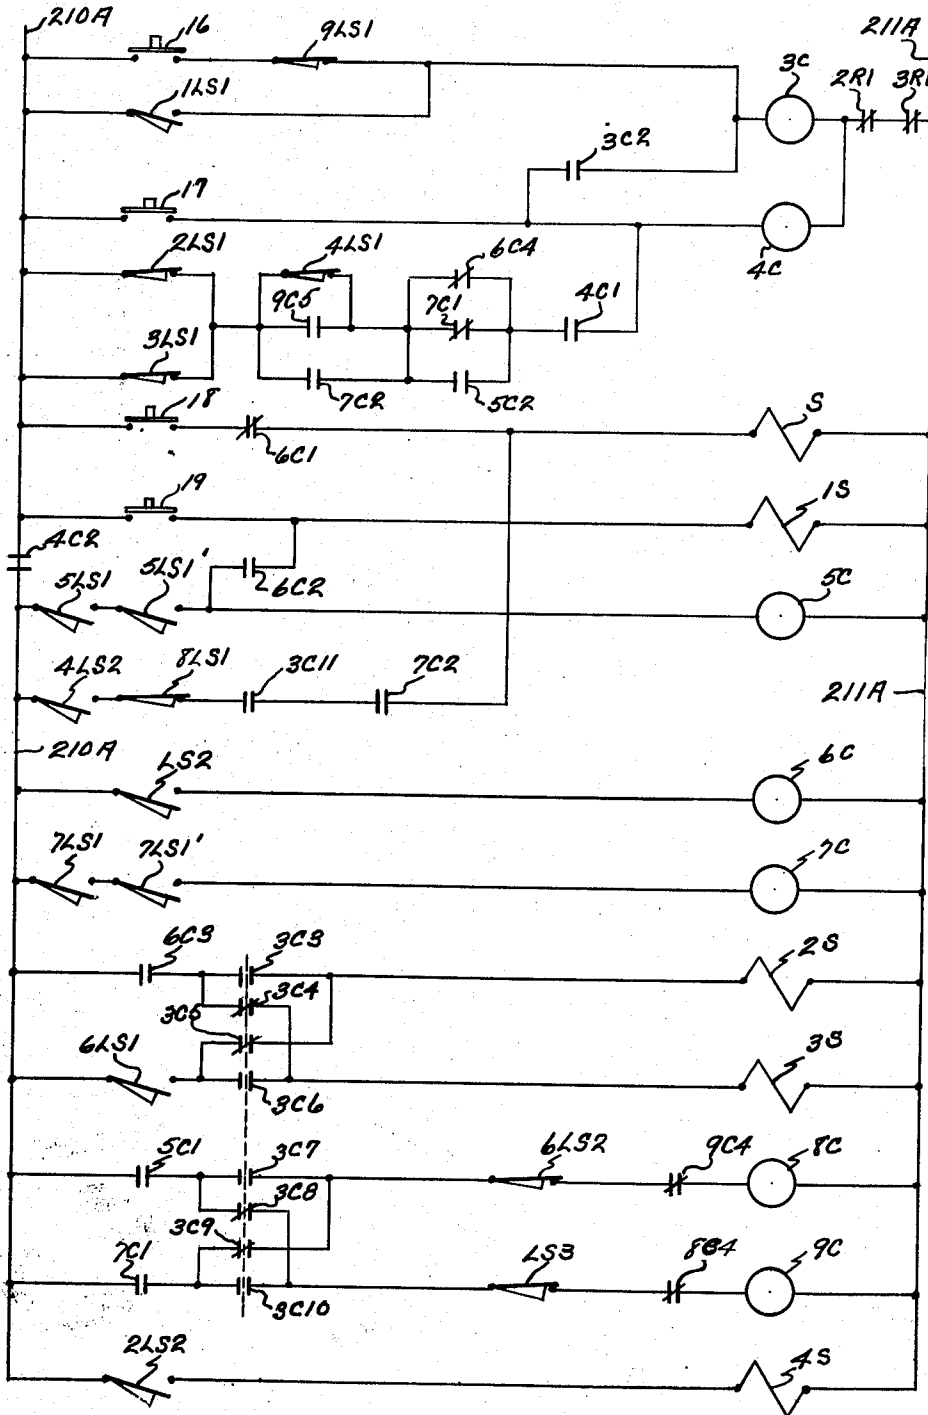 210A
16
9LS1
211A
1LS1
3C
2R1
3R1
3C2
17
2LS1
4LS1
6C4
4C
9C5
7C1
4C1
3LS1
7C2
5C2
18
6C1
S
19
1S
4C2
5LS1
5LS1'
6C2
5C
4LS2
8LS1
3C11
7C2
211A
210A
LS2
6C
7LS1
7LS1'
7C
6C3
3C3
2S
3C4
3C5
6LS1
3S
3C6
5C1
3C7
6LS2
9C4
8C
3C8
3C9
7C1
LS3
8C4
9C
3C10
2LS2
4S